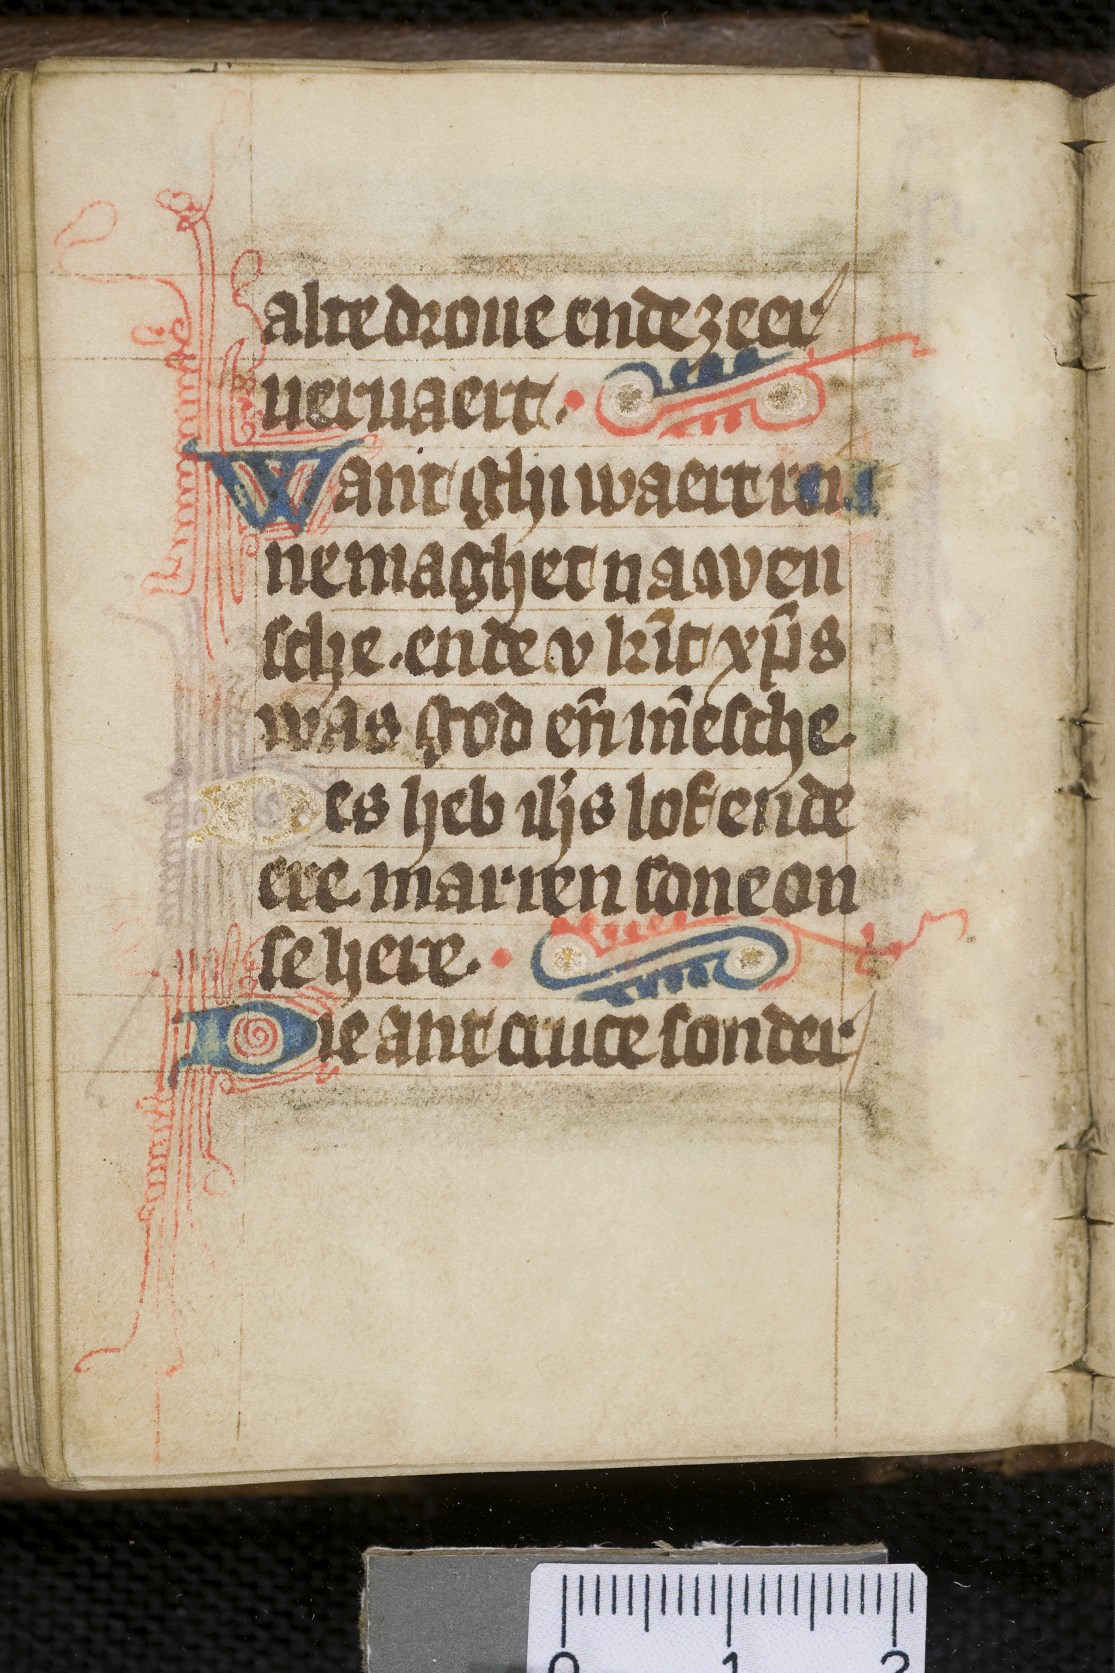 alte droue ende zeer
veruaert.
Want ghi waert rei
ne maghet na mēn
sche. ende v kīt xp̄s
was god en̄ mēsche.
Des heb ih̄s lof ende
ere marien sone on
se here.
Die ant cruce sonder
0 1 2